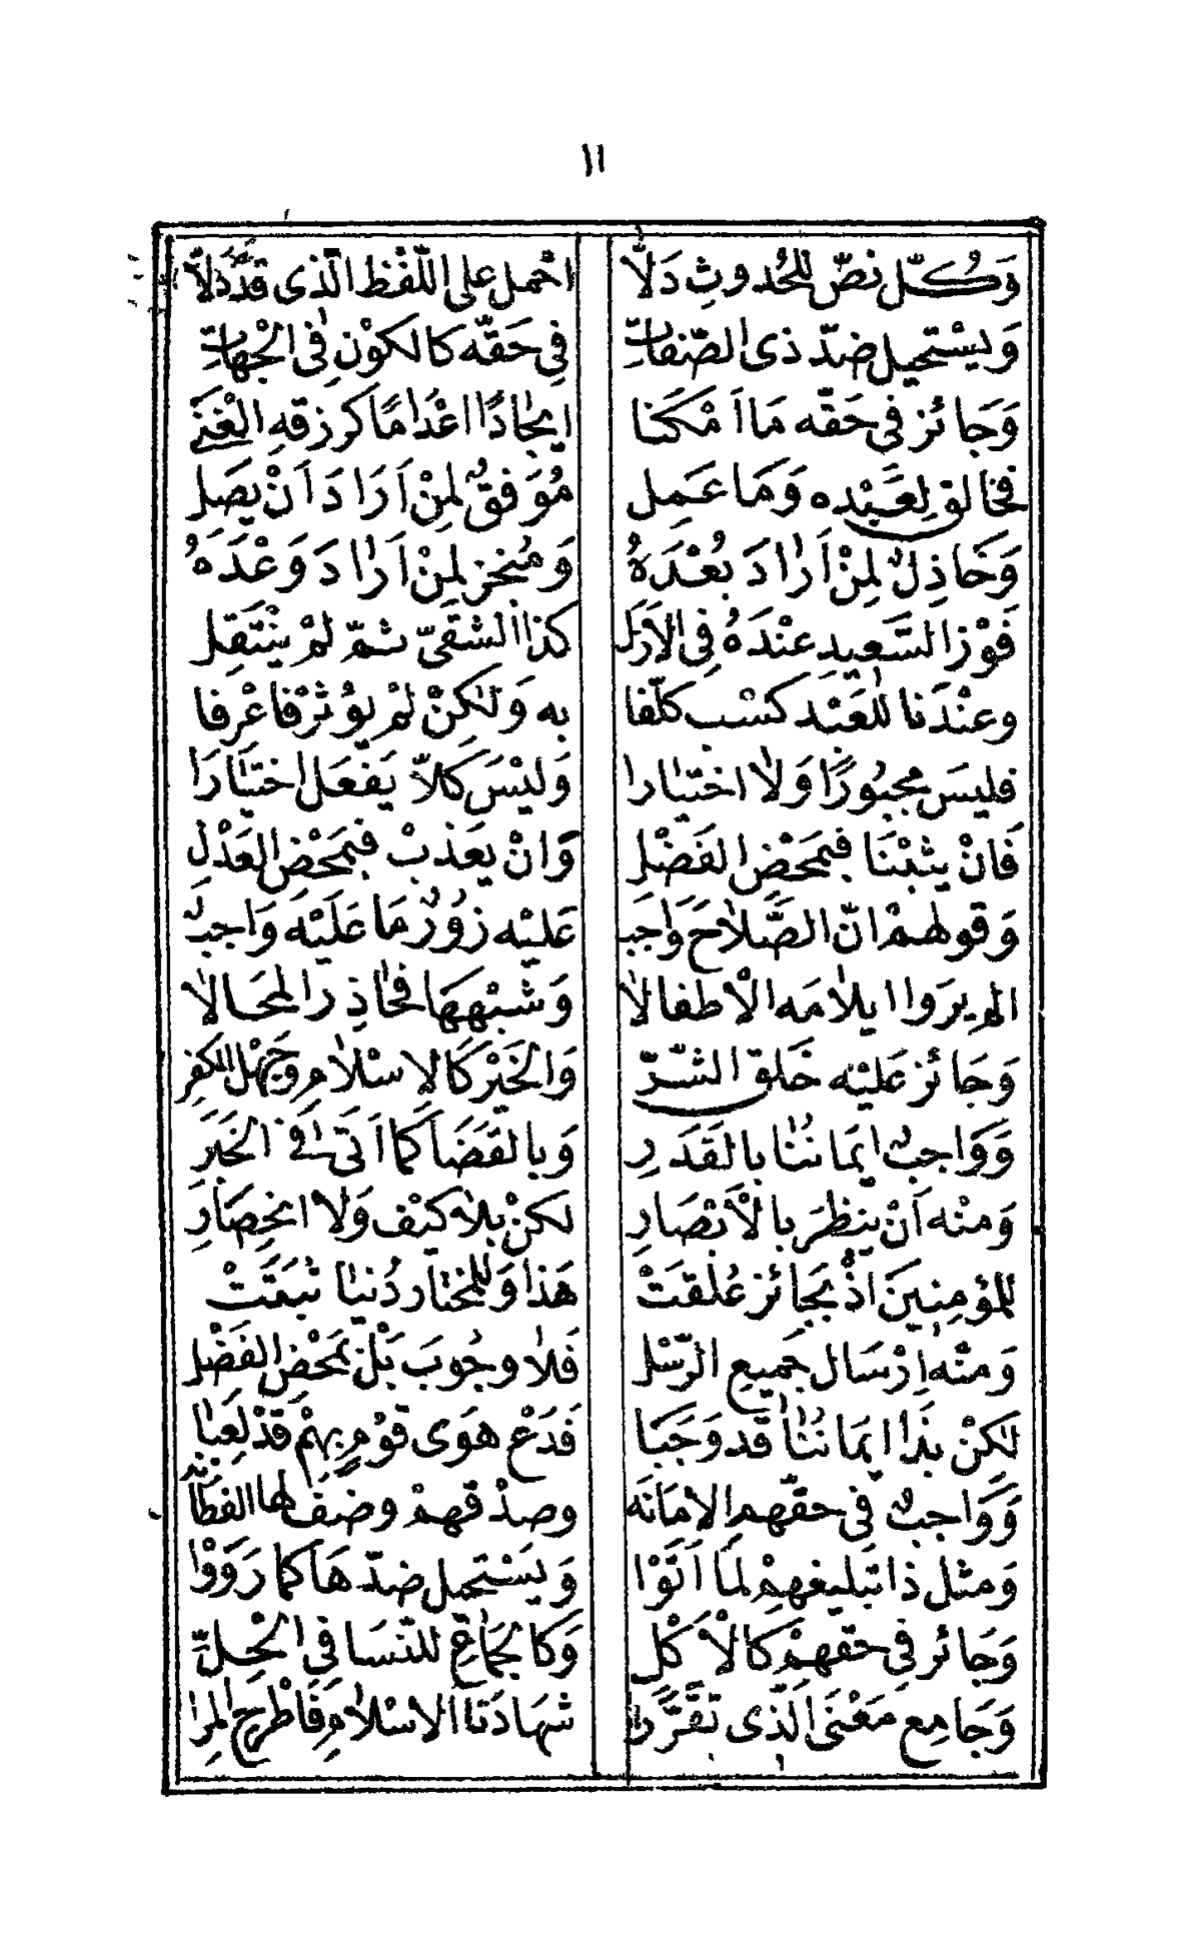 ١١
وَكُلّ نصّ للحُدوثِ دَلاَّ احْمل على اللّفْظ الّذى قدْ دَلاَّ
وَيسْتحيل ضدّ ذى الصّفاتِ فِى حَقّه كالكوْنِ فِى الْجهاتِ
وَجَائز فى حَقّه مَا اَمْكَنا ايجَادًا اعْدَامًا كرزقهِ الْغنَى
فخالق لِعَبْده وَمَا عَمِل مُوَفقٌ لمِنْ اَرَادَ اَنْ يصَل
وَخَاذِلٌ لِمنْ اَرَادَ بُعْدَهُ وَمُنجز لِمنْ اَرَادَ وَعْدَهُ
فَوْز السَّعيدِ عنْدَهُ فِى الاَزَل كذا الشقىّ ثمّ لمْ ينْتَقِل
وعنْدَنا للعَبْد كسْب كلّفا به وَلٰكِنْ لمْ يؤثرْ فاعْرِفا
فليسَ مجبُورًا وَلا اختيارا وَليْسَ كَلاّ يَفعَل اختيَارَا
فَانْ يثبْنَا فبمَحْضِ الفَضْل وَانْ يعَذبْ فبمَحْضِ العَدْلِ
وَقولهمْ انّ الصَّلاَحَ وَاجَب عَليْه زُوْرٌ مَا عَلَيْه وَاجبٌ
الم يرَوا ايلاَمَه الْاطفالا وَشبْههَا فحَاذِر المحَالاَ
وَجَائز عَليْه خَلق الشّرّ وَالخَيْر كَالإسْلاَمِ وَجَهْل الكفرِ
وَوَاجبٌ ايمَانُنَا بالقَدَرِ وَبالقَضَا كمَا اَتىَ فِى الخَبَرِ
وَمنْه اَنْ ينظرَ بالْاَبْصَارِ لكنْ بلاَ كيْف وَلاَ انحِصَارِ
للمؤمِنِينَ اذْ بجَائز عُلقتْ هَذا وَللمختار دُنيَا ثبَتَتْ
وَمنْه اِرْسَال جَميعِ الرّسْل فَلا وجُوبَ بَلْ بمَحْضِ الفَضْل
لكِنْ بذَا ايمَانُنَا قد وَجَبَا فَدَعْ هوَى قوْمٍ بِهِمْ قدْ لعِبَا
وَوَاجبٌ فى حقّهم الاِمَانَه وصدْقهمْ وضِفْ لها الفطَانَه
وَمثل ذا تبليغهمْ لمَا اَتَوْا وَيسْتحيل ضدّهَا كما رَوَوْا
وَجَائز فِى حقهمْ كَالْاَكْلِ وَكالجمَاعِ للنّسَا فى الْحِلِّ
وَجَامِع مَعْنَى الّذى تقَرَّرَا شهَادَتا الاسْلاَمِ فَاطْرحِ المرَا